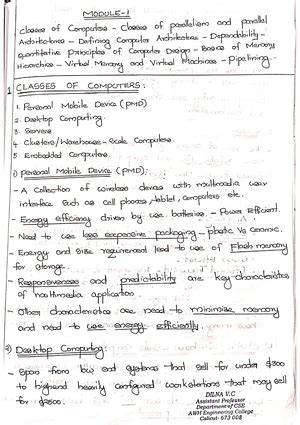 MODULE-1
Classes of Computers - Classes of parallelism and parallel
Architectures - Defining Computer Architecture - Dependability -
Quantitative Principles of Computer Design - Basics of Memory
Hierarchies - Virtual Memory and Virtual Machines - Pipelining.
1 CLASSES OF COMPUTERS:
1. Personal Mobile Device (PMD)
2. Desktop Computing.
3. Servers
4. Clusters/Warehouse-Scale Computers
5. Embedded Computers.
1) Personal Mobile Device (PMD):
- A Collection of wireless devices with multimedia user
interface Such as cell phones, tablet computers etc.
- Energy efficiency driven by use batteries - Power Efficient.
- Need to use less expensive packaging - plastic Vs Ceramic.
- Energy and Size requirement lead to use of Flash memory
for storage.
- Responsiveness and predictability are key characteristics
of multimedia application.
- Other characteristics are need to minimize memory
and need to use energy efficiently.
2) Desktop Computing:
- Span from low end systems that sell for under $300
to highend heavily configured workstations that may sell
for $2500.
DILNA V.C
Assistant Professor
Department of CSE
AWH Engineering College
Calicut- 673 008